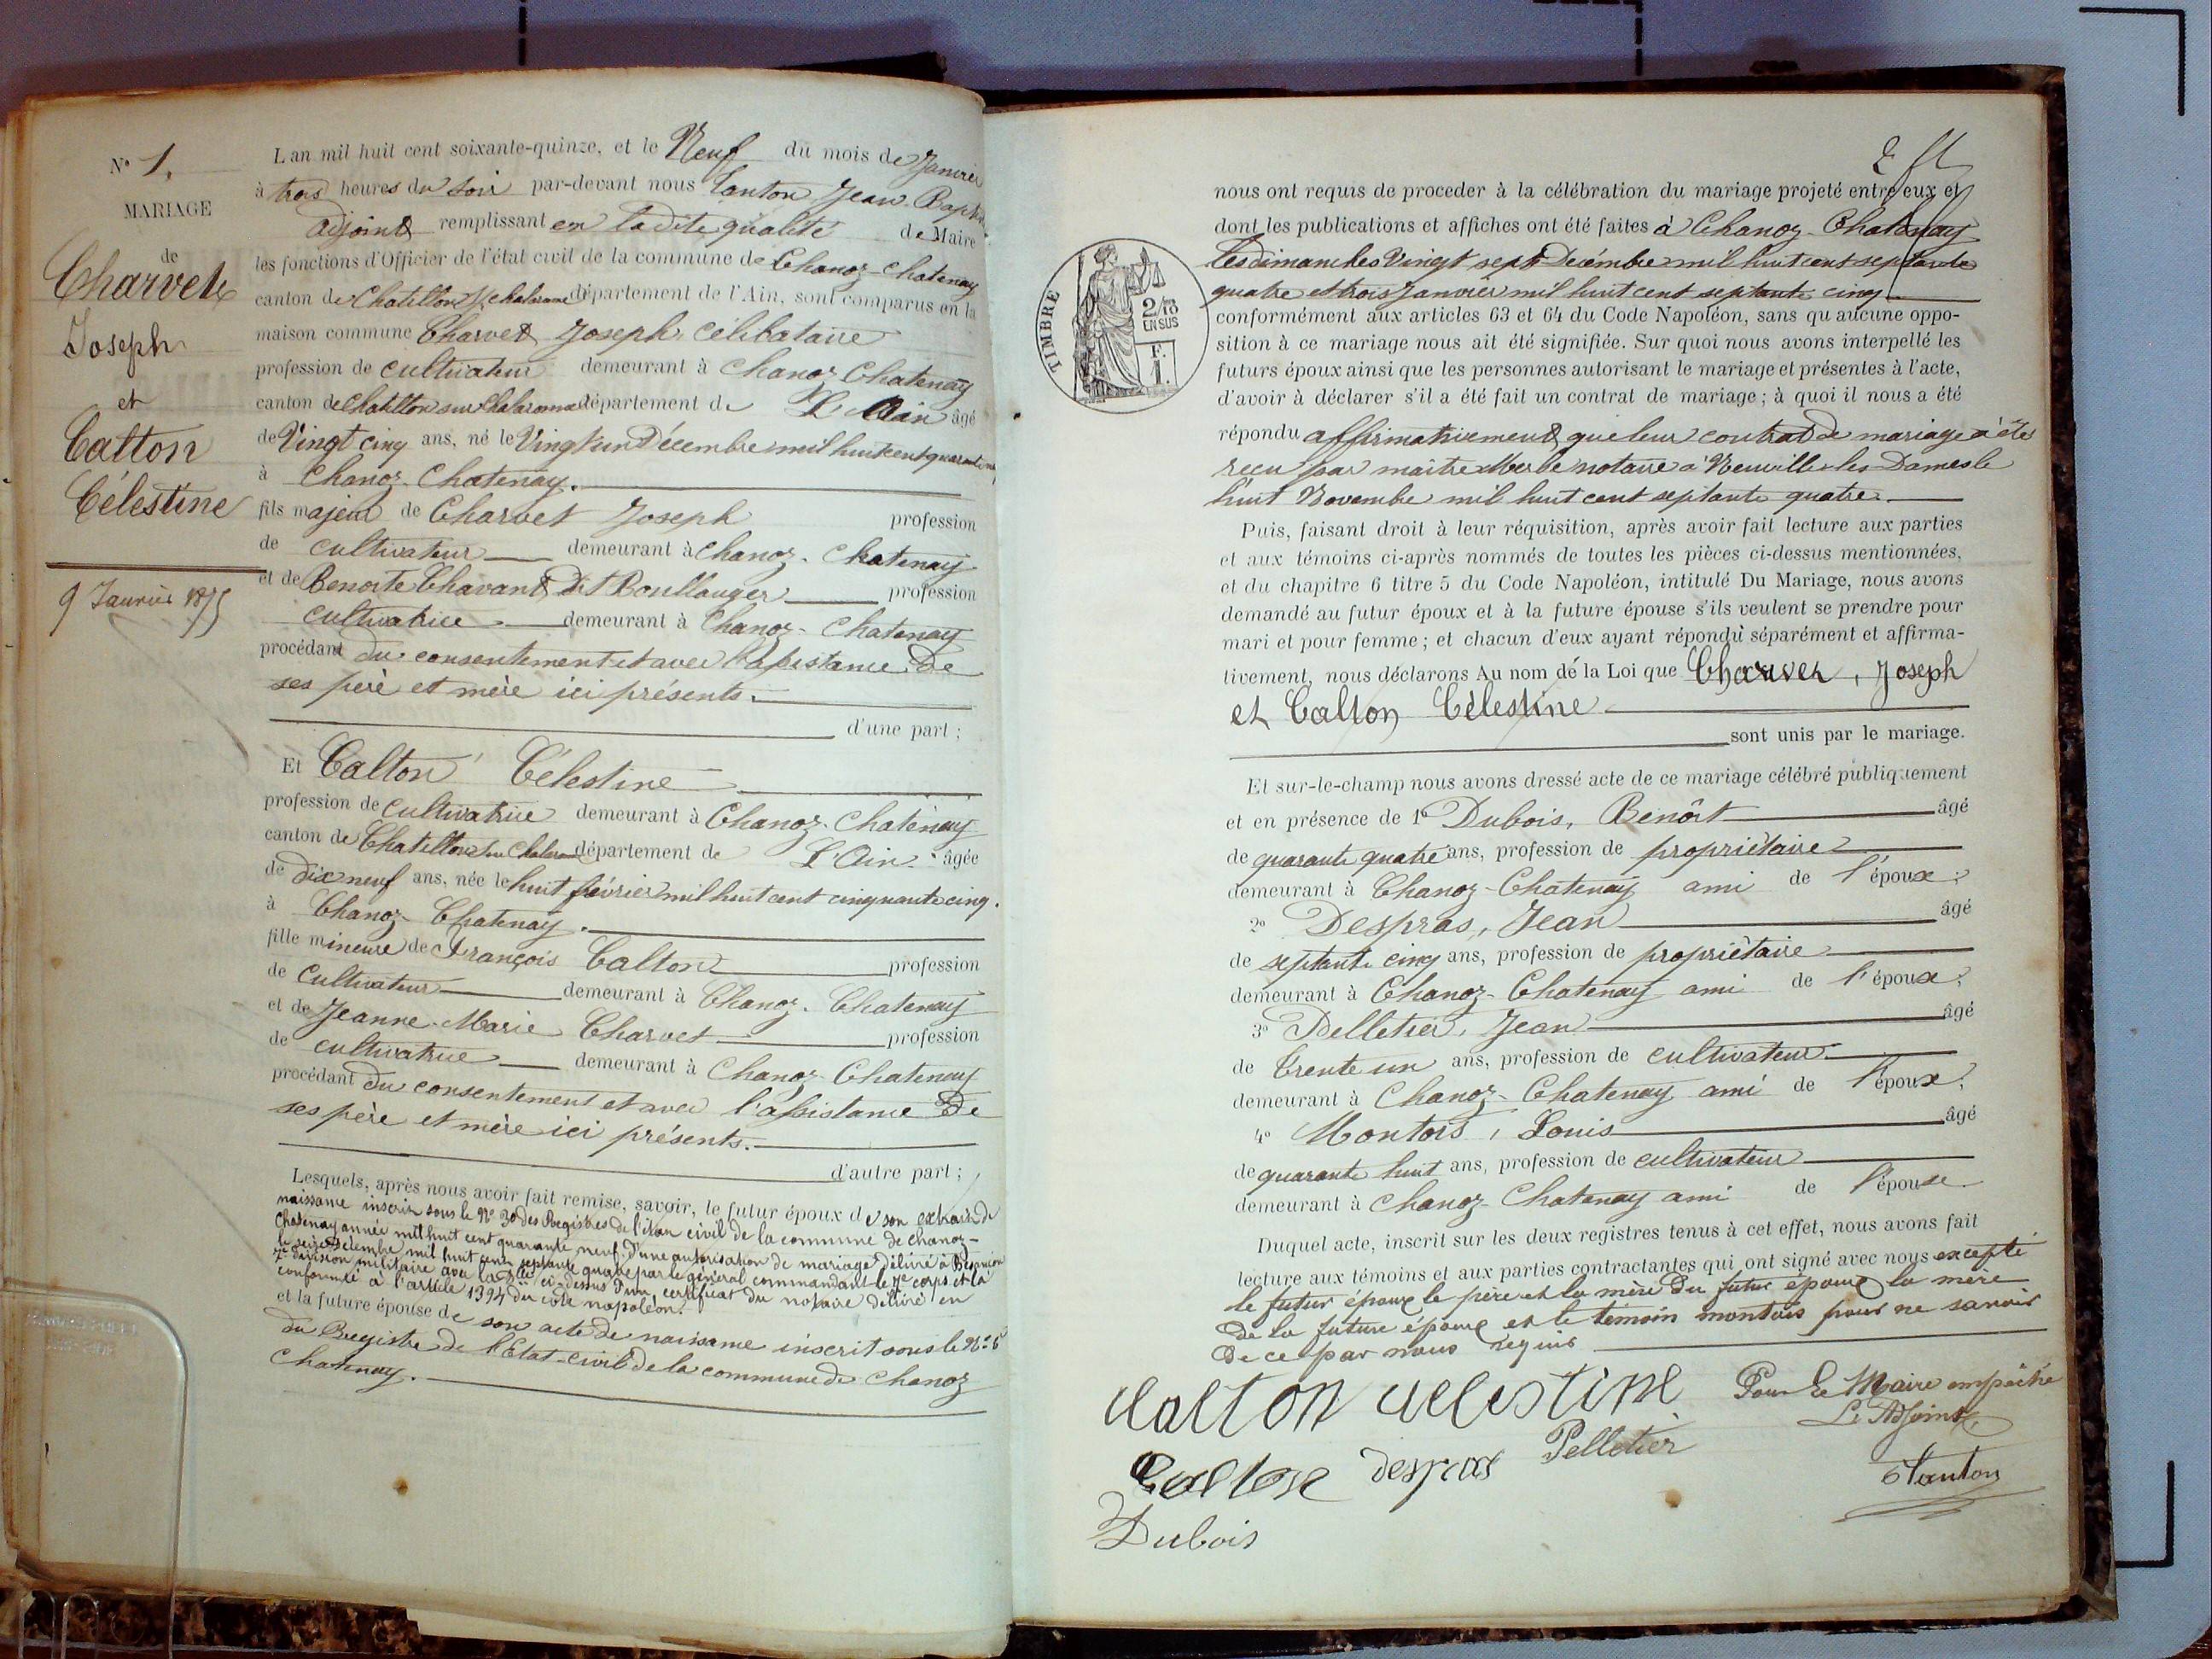 N° 1.
MARIAGE
de
Charvet
Joseph
et
Catton
Célestine
9 Janvier 1875
L'an mil huit cent soixante-quinze, et le Neuf du mois de Janvier
à trois heures du soir par-devant nous Tanton Jean-Baptiste
adjoint remplissant en la dite qualité de Maire
les fonctions d'Officier de l'état civil de la commune de Chanoz-Chatenay
canton de Chatillon s/ Chalaronne département de l'Ain, sont comparus en la
maison commune Charvet Joseph, célibataire
profession de cultivateur demeurant à Chanoz Chatenay
canton de Chatillon sur Chalaronne département de L'Ain âgé
de Vingt cinq ans, né le Vingt un Décembre mil huit cent quarante neuf
à Chanoz-Chatenay.
fils majeur de Charvet Joseph profession
de cultivateur demeurant à Chanoz-Chatenay
et de Benoite Chavant dit Boullanger profession
cultivatrice demeurant à Chanoz-Chatenay
procédant du consentement et avec l'assistance de
ses père et mère ici présents.
d'une part ;
Et Catton Célestine
profession de cultivatrice demeurant à Chanoz-Chatenay
canton de Chatillon sur Chalaronne département de L'Ain âgée
de dix neuf ans, née le huit février mil huit cent cinquante cinq.
à Chanoz-Chatenay.
fille mineure de François Catton profession
de cultivateur demeurant à Chanoz-Chatenay
et de Jeanne-Marie Charvet profession
de cultivatrice demeurant à Chanoz-Chatenay
procédant du consentement et avec l'assistance de
ses père et mère ici présents.
d'autre part ;
Lesquels, après nous avoir fait remise, savoir, le futur époux de son extrait de
naissance inscrit sous le N° 30 des Registres de l'état civil de la commune de Chanoz-
Chatenay année mil huit cent quarante neuf. D'une autorisation de mariage délivré à Besançon
le seize Décembre mil huit cent septante quatre par le général commandant le 7e corps et la
7e division militaire avec la ci-dessus d'un certificat du notaire délivré en
conformité à l'article 1394 du code napoléon.
et la future épouse de son acte de naissance inscrit sous le N° 6
du Registre de l'Etat-civil de la commune de Chanoz
Chatenay.
2
TIMBRE
2/10
EN SUS
F.
1.
nous ont requis de proceder à la célébration du mariage projeté entre eux et
dont les publications et affiches ont été faites à Chanoz-Chatenay
les dimanches Vingt sept Décembre mil huit cent septante
quatre et trois Janvier mil huit cent septante cinq
conformément aux articles 63 et 64 du Code Napoléon, sans qu'aucune oppo-
sition à ce mariage nous ait été signifiée. Sur quoi nous avons interpellé les
futurs époux ainsi que les personnes autorisant le mariage et présentes à l'acte,
d'avoir à déclarer s'il a été fait un contrat de mariage ; à quoi il nous a été
répondu affirmativement que leur contrat de mariage a été
reçu par maître notaire à Neuville-les-Dames le
huit Novembre mil huit cent septante quatre.
Puis, faisant droit à leur réquisition, après avoir fait lecture aux parties
et aux témoins ci-après nommés de toutes les pièces ci-dessus mentionnées,
et du chapitre 6 titre 5 du Code Napoléon, intitulé Du Mariage, nous avons
demandé au futur époux et à la future épouse s'ils veulent se prendre pour
mari et pour femme ; et chacun d'eux ayant répondu séparément et affirma-
tivement, nous déclarons Au nom de la Loi que Charvet, Joseph
et Catton Célestine
sont unis par le mariage.
Et sur-le-champ nous avons dressé acte de ce mariage célébré publiquement
et en présence de 1° Dubois, Benoît âgé
de quarante quatre ans, profession de propriétaire
demeurant à Chanoz-Chatenay ami de l'époux ;
2° Despras, Jean âgé
de septante cinq ans, profession de propriétaire
demeurant à Chanoz-Chatenay ami de l'époux ;
3° Pelletier, Jean âgé
de Trente un ans, profession de cultivateur
demeurant à Chanoz-Chatenay ami de l'époux ;
4° Montois, Louis âgé
de quarante huit ans, profession de cultivateur
demeurant à Chanoz-Chatenay ami de l'épouse
Duquel acte, inscrit sur les deux registres tenus à cet effet, nous avons fait
lecture aux témoins et aux parties contractantes qui ont signé avec nous excepté
le futur époux le père et la mère du futur époux la mère
de la future épouse et le témoin montois pour ne savoir
de ce par nous requis
Catton celestine
Pour Le Maire empêché
L'Adjoint
Catton despras Pelletier
Tanton
Dubois